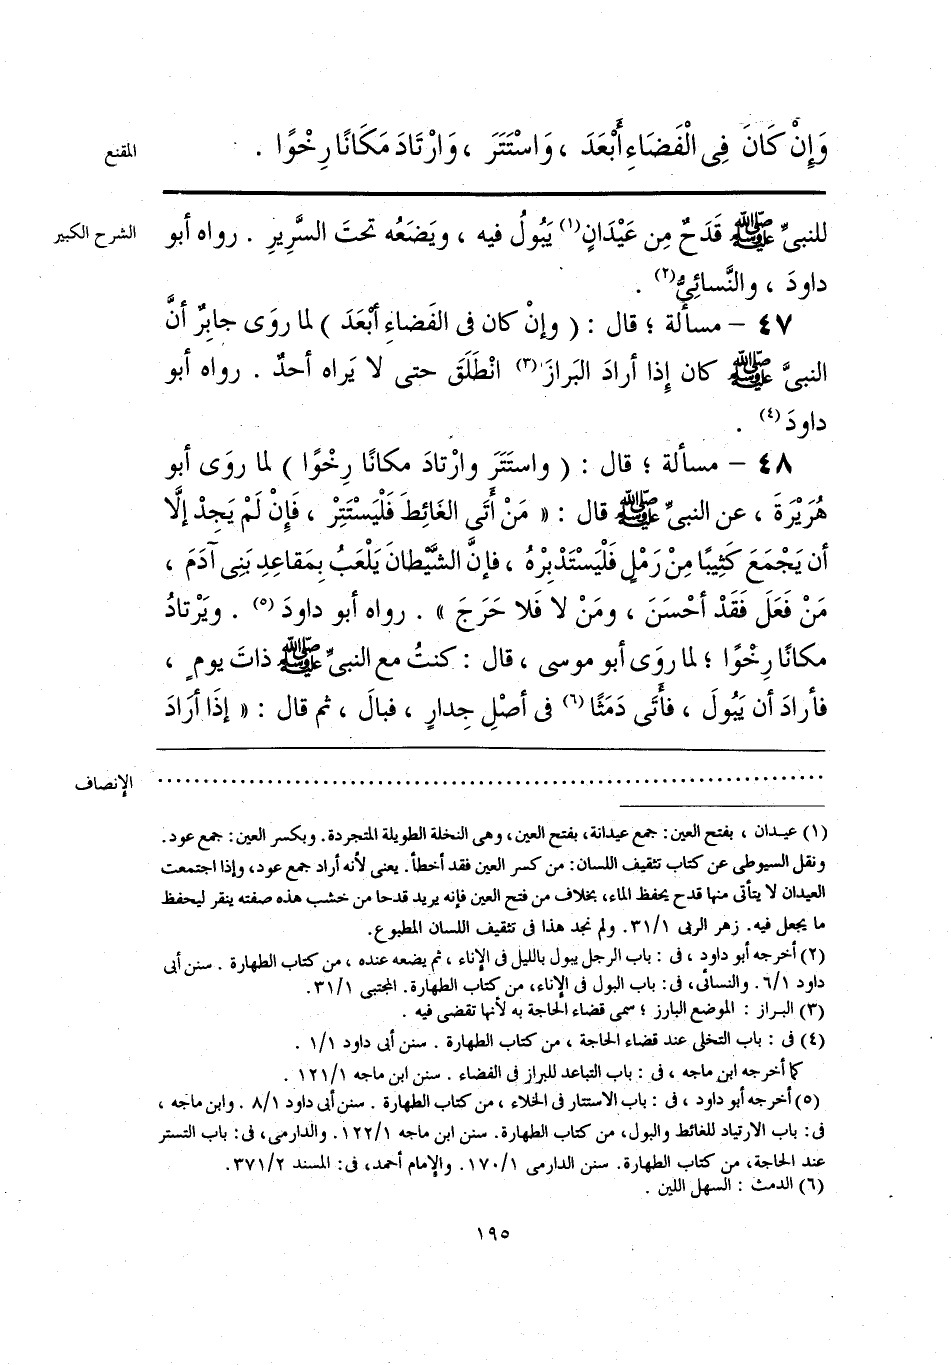 المقنع
وَإِنْ كَانَ فِى الْفَضَاءِ أَبْعَدَ ، وَاسْتَتَرَ ، وَارْتَادَ مَكَانًا رِخْوًا .
الشرح الكبير
للنبىِّ ﷺ قَدَحٌ مِن عَيْدَانٍ(١) يَبُولُ فيه ، ويَضَعُه تحتَ السَّرِيرِ . رواه أبو
داودَ ، والنَّسائِىُّ(٢) .
٤٧ – مسألة ؛ قال : ( وإنْ كان فى الفَضاءِ أبْعَدَ ) لما روَى جابِرٌ أنَّ
النبىَّ ﷺ كان إذا أرادَ البَرازَ(٣) انْطَلَقَ حتى لا يَراه أحدٌ . رواه أبو
داودَ(٤) .
٤٨ – مسألة ؛ قال : ( واستَتَرَ وارْتادَ مكانًا رِخْوًا ) لما روَى أبو
هُرَيْرَةَ ، عن النبىِّ ﷺ قال : « مَنْ أَتَى الغَائِطَ فَلْيَسْتَتِرْ ، فَإِنْ لَمْ يَجِدْ إلَّا
أن يَجْمَعَ كَثِيبًا مِنْ رَمْلٍ فَلْيَسْتَدْبِرْهُ ، فإنَّ الشَّيْطانَ يَلْعَبُ بِمَقاعِدِ بَنِى آدَمَ ،
مَنْ فَعَلَ فَقَدْ أحْسَنَ ، ومَنْ لا فَلا حَرَجَ » . رواه أبو داودَ(٥) . ويَرْتادُ
مكانًا رِخْوًا ؛ لما روَى أبو موسى ، قال : كنتُ مع النبىِّ ﷺ ذاتَ يومٍ ،
فأرادَ أن يَبُولَ ، فأَتَى دَمَثًا(٦) فى أصْلِ جِدارٍ ، فبالَ ، ثم قال : « إذَا أرَادَ
الإنصاف
................................................................................
(١) عيدان ، بفتح العين: جمع عيدانة، بفتح العين، وهى النخلة الطويلة المتجردة. وبكسر العين: جمع عود.
ونقل السيوطى عن كتاب تثقيف اللسان: من كسر العين فقد أخطأ. يعنى لأنه أراد جمع عود، وإذا اجتمعت
العيدان لا يتأتى منها قدح يحفظ الماء، بخلاف من فتح العين فإنه يريد قدحا من خشب هذه صفته ينقر ليحفظ
ما يجعل فيه. زهر الربى ٣١/١. ولم نجد هذا فى تثقيف اللسان المطبوع.
(٢) أخرجه أبو داود ، فى : باب الرجل يبول بالليل فى الإناء ، ثم يضعه عنده ، من كتاب الطهارة . سنن أبى
داود ٦/١. والنسائى، فى: باب البول فى الإناء، من كتاب الطهارة. المجتبى ٣١/١.
(٣) البراز : الموضع البارز ؛ سمى قضاء الحاجة به لأنها تقضى فيه .
(٤) فى : باب التخلى عند قضاء الحاجة ، من كتاب الطهارة . سنن أبى داود ١/١ .
كما أخرجه ابن ماجه ، فى : باب التباعد للبراز فى الفضاء . سنن ابن ماجه ١٢١/١ .
(٥) أخرجه أبو داود ، فى : باب الاستتار فى الخلاء ، من كتاب الطهارة . سنن أبى داود ٨/١ . وابن ماجه ،
فى: باب الارتياد للغائط والبول، من كتاب الطهارة. سنن ابن ماجه ١٢٢/١. والدارمى، فى: باب التستر
عند الحاجة، من كتاب الطهارة. سنن الدارمى ١٧٠/١. والإمام أحمد، فى: المسند ٣٧١/٢.
(٦) الدمث : السهل اللين .
١٩٥